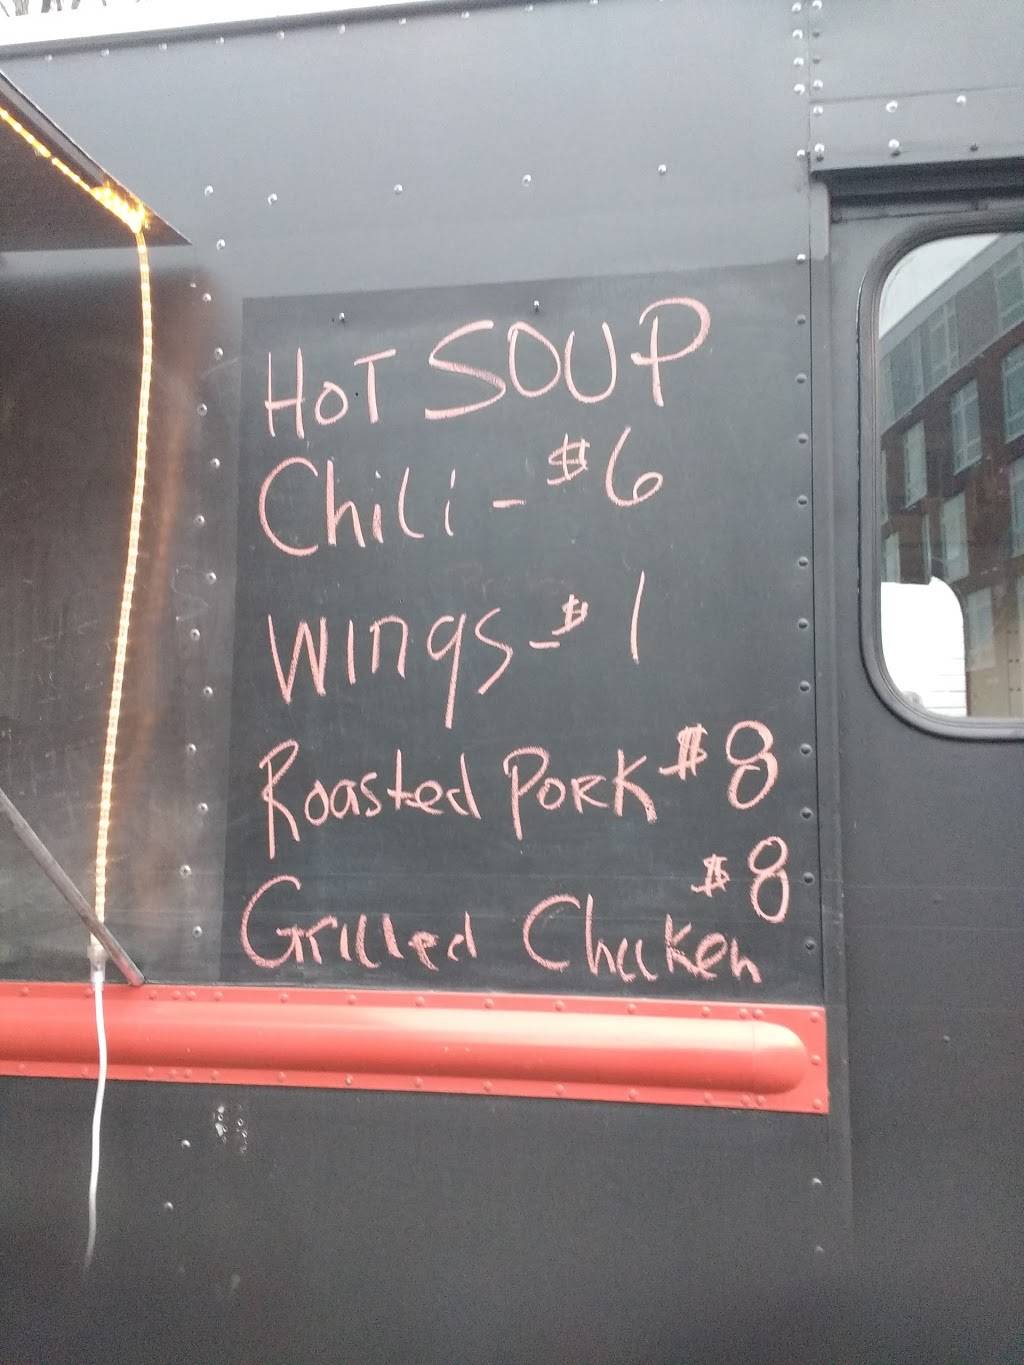 HOT SOUP
Chili - $6
Wings - $1
Roasted Pork $8
Grilled Chicken $8